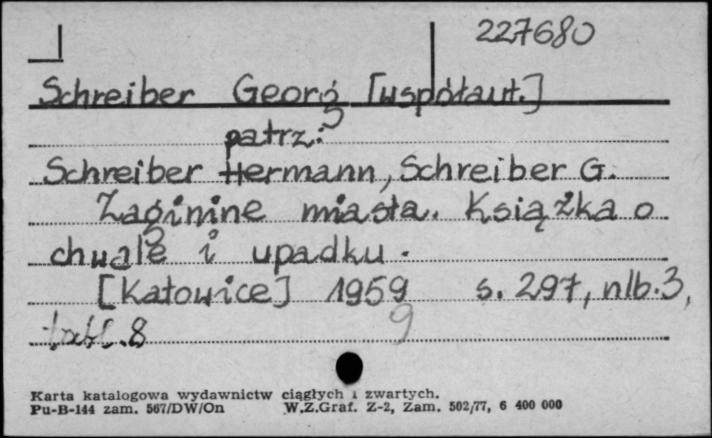 227680
Schreiber Georg [współaut.]
patrz:
Schreiber Hermann, Schreiber G.
Zaginine miasta. Książka o
chwale i upadku.
[Katowice] 1959 s. 297, nlb. 3,
tabl. 8
9
Karta katalogowa wydawnictw ciągłych i zwartych.
Pu-B-144 zam. 567/DW/On W.Z.Graf. Z-2, Zam. 502/77, 6 400 000